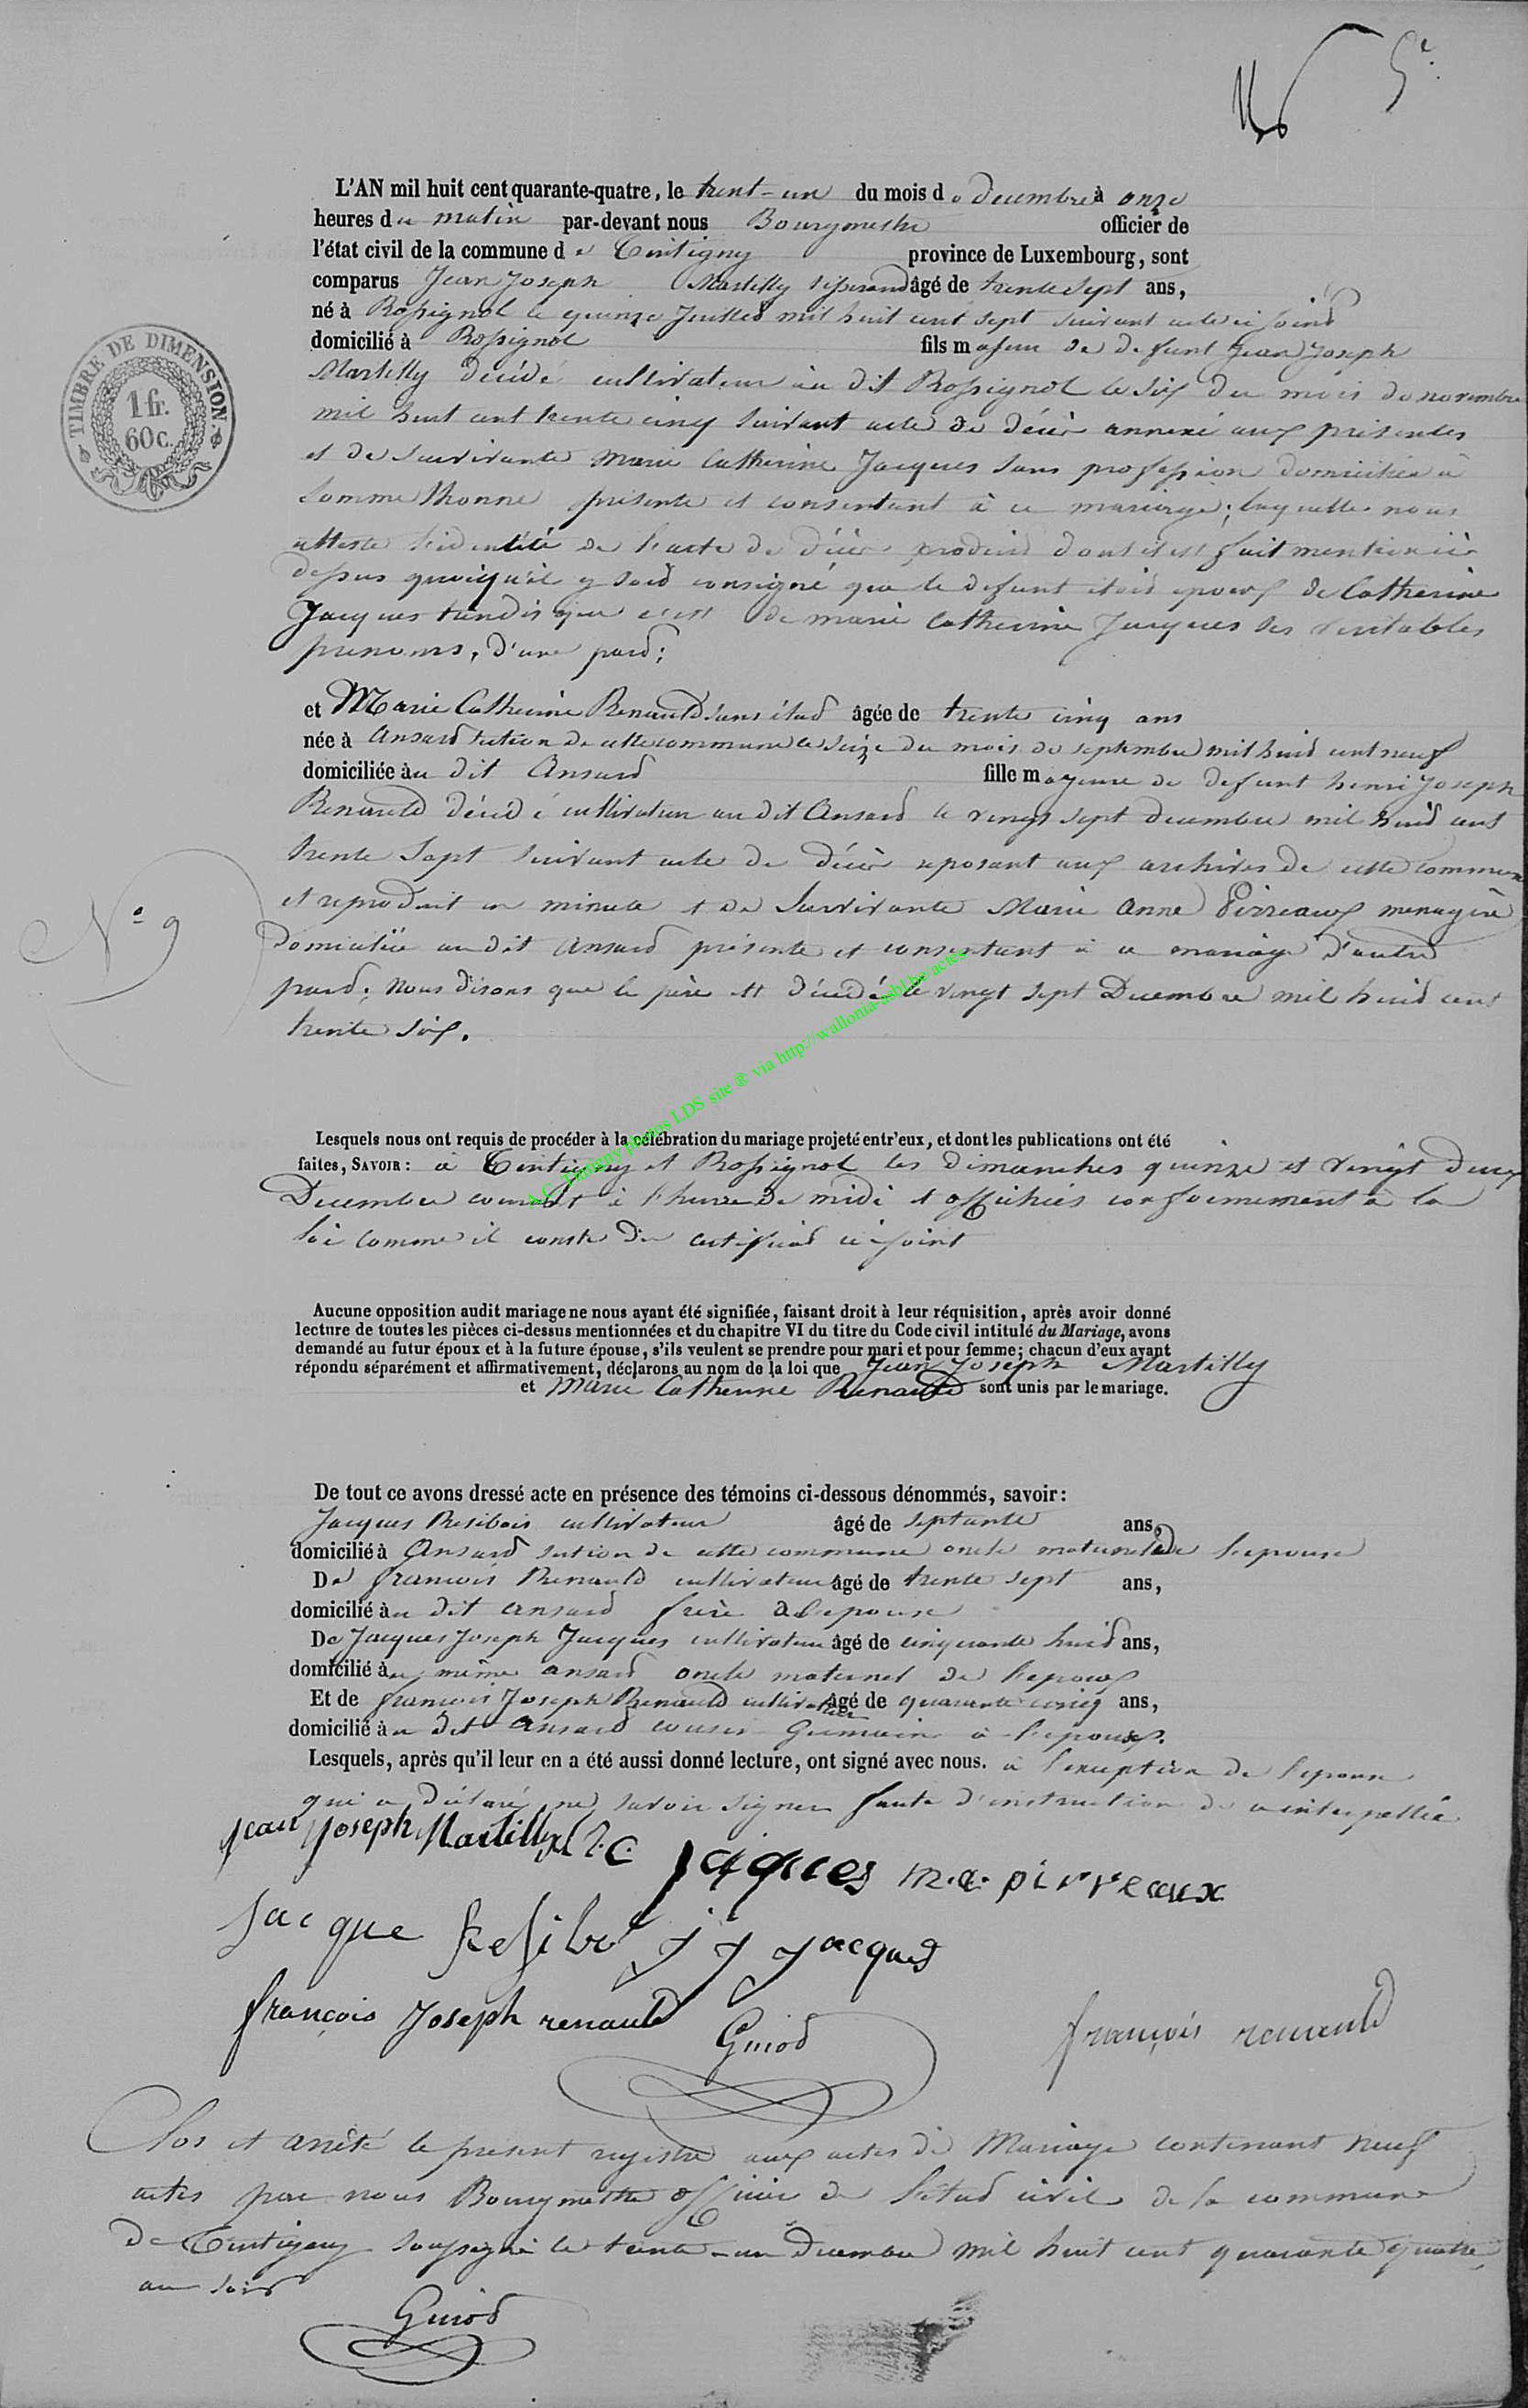 5e.
L'AN mil huit cent quarante-quatre, le trent-un du mois de decembre à onze
heures du matin par-devant nous Bourgmestre officier de
l'état civil de la commune de Tintigny province de Luxembourg, sont
comparus Jean Joseph Martilly tisserand âgé de trente sept ans,
né à Rossignol le quinze Juillet mil huit cent sept suivant acte ci joint
domicilié à Rossignol fils majeur de defunt Jean Joseph
Martilly décédé cultivateur au dit Rossignol le six du mois de novembre
mil huit cent trente cinq suivant acte de décès annexé aux présentes
et de survivante Marie Catherine Jacques sans profession domiciliée à
Somme thonne présente et consentant à ce mariage; laquelle nous
atteste l'identité de l'acte de décès produit dont il est fait mention ci
dessus quoiqu'il y soit consigné que le defunt étoit epoux de Catherine
Jacques tandis que c'est de marie Catherine Jacques ses veritables
prenoms, d'une part;
et Marie Catherine Renauld sans état âgée de trente cinq ans
née à Ansard section de cette commune le seize du mois de septembre mil huit cent neuf
domiciliée au dit Ansard fille majeure de defunt henri Joseph
Renauld décédé cultivateur au dit Ansard le vingt sept decembre mil huit cent
trente sept suivant acte de décès reposant aux archives de cette commune
et reproduit en minute et de survivante Marie Anne Pirreaux menagère
N° 9
domiciliée au dit Ansard présente et consentant à ce mariage d'autre
part; nous disons que le père est décédé le vingt sept Decembre mil huit cent
trente six.
A.C. Tintigny photos LDS site ® via http://wallonia-asbl.be/actes
Lesquels nous ont requis de procéder à la célébration du mariage projeté entr'eux, et dont les publications ont été
faites, SAVOIR: à Tintigny et Rossignol les dimanches quinze et vingt deux
Decembre courant à l'heure de midi et affichées conformement à la
loi comme il conste du certificat ci joint
Aucune opposition audit mariage ne nous ayant été signifiée, faisant droit à leur réquisition, après avoir donné
lecture de toutes les pièces ci-dessus mentionnées et du chapitre VI du titre du Code civil intitulé du Mariage, avons
demandé au futur époux et à la future épouse, s'ils veulent se prendre pour mari et pour femme; chacun d'eux ayant
répondu séparément et affirmativement, déclarons au nom de la loi que Jean Joseph Martilly
et Marie Catherine Renauld sont unis par le mariage.
De tout ce avons dressé acte en présence des témoins ci-dessous dénommés, savoir:
Jacques Resibois cultivateur âgé de septante ans,
domicilié à Ansard section de cette commune oncle maternel de l'epouse
De francois Renauld cultivateur âgé de trente sept ans,
domicilié au dit ansard frère à l'epouse
De Jacques Joseph Jacques cultivateur âgé de cinquante huit ans,
domicilié au même ansard oncle maternel de l'epoux
Et de françois Joseph Renauld cultivateur âgé de quarante cinq ans,
domicilié au dit Ansard cousin Germain à l'epouse.
Lesquels, après qu'il leur en a été aussi donné lecture, ont signé avec nous. à l'exception de l'epouse
qui a déclaré ne savoir signer faute d'instruction de ce interpellée
jean joseph Martilly m.c jaques m.a. pirreaux
jacque Resibo j j jacques
françois joseph renauld Guiot françois renauld
Clos et arrêté le present registre aux actes de Mariage contenant neuf
actes par nous Bourgmestre officier de l'état civil de la commune
de Tintigny soussigné le trente-un decembre mil huit cent quarante quatre,
au soir
Guiot
TIMBRE DE DIMENSION.
1 fr.
60 c.